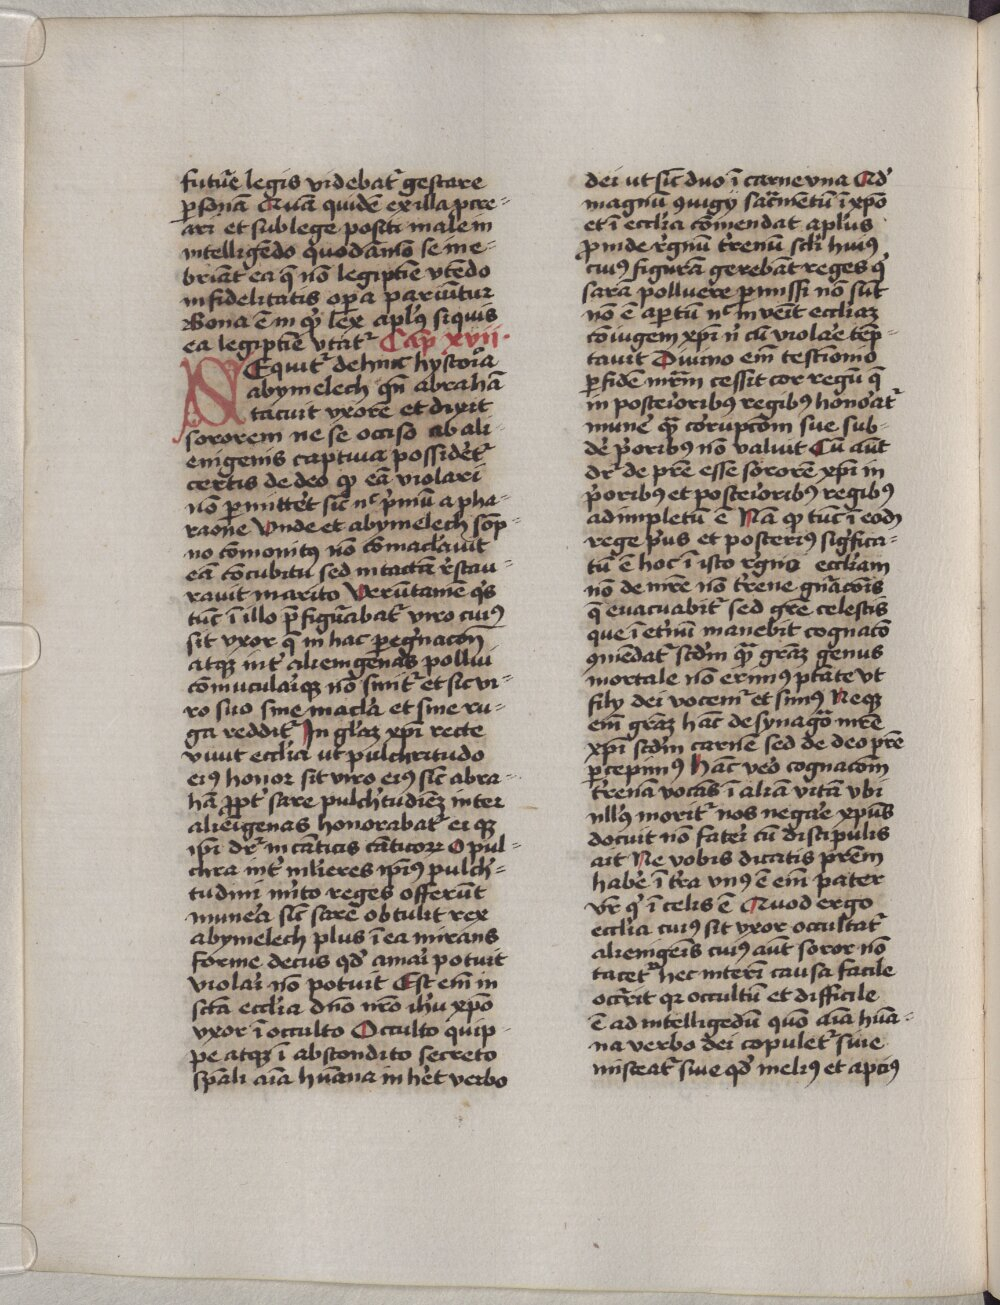 futur̄e legis videbat᷑ gestare
p̲sonā Quā quidē ex illa p̲cre-
ari et sub lege positi male in
intelligēdo quodāmō se ine-
briāt ea q̄ nō legiptīe vtēdo
infidelitatis op̲a pariūtur
Bona ē inq̲ lex apl'us si quis
ea legiptīe vtat᷑ Cap̄ xvii·
SEquit᷑ dehinc hystoria
abymelech qn̄ abrahā
tacuit vxorē et dixit
sororem ne se occiso ab ali-
enigenis captiva possidēt᷑
certis de deo q̲ eā violari
nō p̲mittet sic̄ nᶜ p̓mū a pha-
raōne Vnde et abymelech sōp-
no cōmonitꝰ nō cōmaclavit
eā cōcubitu sed intactā r̄stau-
ravit marito Verūtamē qͥs
tūc ī illo p̄figurabat᷑ viro cuiꝰ
sit vxor q̄ in hac p̲eg̓nacōn̄
atqꝫ int̓ aliemgenas pollui
cōmuculariqꝫ nō sinit᷑ et sic vi-
ro suo sine macl'a et sine ru-
ga reddit᷑ In gl'aꝫ xp̄i recte
vivit eccl'ia ut pulchritudo
eiꝰ honor sit viro eiꝰ sic̄ abra-
hā p̲pt̓ sare pulch̓tudiēꝫ inter
alieīgenas honorabat᷑ ei qꝫ
ip̄i dr᷑ in cāticis cāticoꝝ O pul-
chra int̓ mlieres ip̄iꝰ pulch̓-
tudini mīto reges offerūt
munera sic̄ sare obtulit rex
abymelech plus ī ea mirans
forme decus qd̓ amari potuit
violari nō potuit Est em̄ in
sc̄ta eccl'ia dn̄o nr̄o ih̄u xp̄o
vxor ī occulto Occulto quip-
pe atqꝫ ī abscondito secreto
sp̄ali aīa hūana inh̓et verbo
dei ut sic̄ duo ī carne vna Ad̓
magnū ꝯiugij sac̄rmentū ī xp̄o
et ī eccl'ia cōmendat apl'us
p̲inde r̓gnū tr̄enū scl'i huiꝰ
cuiꝰ figurā gerebāt reges q̓
sara polluere p̲missi nō sūt
nō ē ap̲tū nᶜ invenit eccl'iaꝫ
cōiugem xp̄i ñ cū violare tēp-
tavit Divino em̄ testiōnio
p̲ fidē mr̄m cessit cor regū q̄
in posterioribꝰ regibꝰ honorat᷑
mune͛ qᵃ corupcōm sue sub-
de͛ p̓oribꝰ nō valuit Cū aūt
dr᷑ de pr̄e esse sororē xp̄i in
p̓oribꝰ et posterioribꝰ regibꝰ
adimpletū ē Nā q̲ tūc ī eodꝫ
rege p̓us et posterius sig̓fica-
tū ē hoc ī isto r̓gno eccl'iam
nō de mr̄e nō tr̄ene gn̄acōnis
q̄ evacuabit᷑ sed gr̄e celestis
que ī et̓nū manebit cognacō
ꝯmēdat᷑ scd̄m qᵃ gr̄aꝫ genus
mortale nō erimꝰ p̄tate vt
filij dei vocem᷑ et simꝰ Neqꝫ
em̄ gr̄aꝫ hāc de synagoᵃ mr̄e
xp̄i scd̄m carnē sed de deo pr̄e
p̲cepimꝰ Hāc v̓o cognacōm
tr̄enā vocās ī aliā vitā vbi
nllꝰ morit᷑ nos negare xp̄us
docuit nō fateri cū discipulis
ait Ne vobis dicatis pr̄em
habe͛ ī tr̄a vnꝰ ē em̄ pater
vr̄ q̓ ī celis ē Quod ergo
eccl'ia cuiꝰ sit vxor occultat᷑
alienigeīs cuiꝰ aūt soror nō
tacet᷑ hec interī causa facile
occ̓rit qꝛ occultū et difficile
ē ad intelligēdū quō aīa hūa-
na verbo dei copulet᷑ sive
misceat᷑ sive qd̓ meliꝰ et apciꝰ